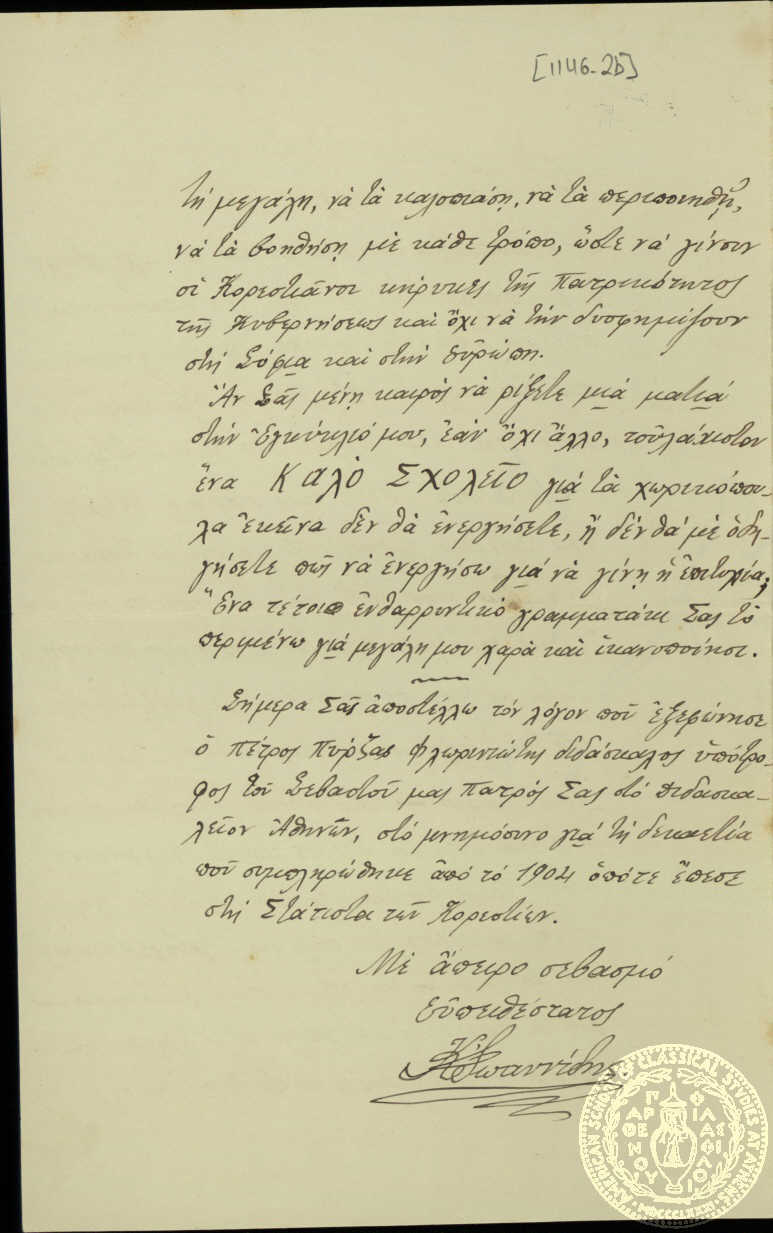 [1146-2b]
τὴ μεγάλη, νὰ τὰ καλοπιάσῃ, νὰ τὰ περιποιηθῇ,
νὰ τὰ βοηθήσῃ μὲ κάθε τρόπο, ὥστε νὰ γίνουν
οἱ Κορεστιᾶνοι κήρυκες τῆς Πατρικότητος
τῆς Κυβερνήσεως καὶ ὄχι νὰ τὴν δυσφημίζουν
στὴ Σόφια καὶ στὴν Εὐρώπη.
Ἂν Σᾶς μένῃ καιρὸς νὰ ρίξετε μιὰ ματιὰ
στὴν Ἐγκύκλιό μου, ἐὰν ὄχι ἄλλο, τοὐλάχιστον
ἕνα Καλὸ Σχολεῖο γιὰ τὰ χωριατόπου-
λα ἐκεῖνα δὲν θὰ ἐνεργήσετε, ἢ δὲν θὰ μὲ ὁδη-
γήσετε πῶς νὰ ἐνεργήσω γιὰ νὰ γίνῃ ἡ ἐπιτυχία;
Ἕνα τέτοιο ἐνθαρρυντικὸ γραμματάκι Σας τὸ
περιμένω γιὰ μεγάλη μου χαρὰ καὶ ἱκανοποίησι.
Σήμερα Σᾶς ἀποστέλλω τὸν λόγον ποῦ ἐξεφώνησε
ὁ Πέτρος Πύρζας Φλωρινιώτης διδάσκαλος ὑπότρο-
φος τοῦ Σεβαστοῦ μας Πατρός Σας στὸ Διδασκα-
λεῖον Ἀθηνῶν, στὸ μνημόσινο γιὰ τὴ δεκαετία
ποῦ συμπληρώθηκε ἀπὸ τὸ 1904 ὁπότε ἔπεσε
στὴ Στάτιστα τῶν Κορεστίων.
Μὲ ἄπειρο σεβασμό
Εὐπειθέστατος
Κ Ἰωαννίδης.
AMERICAN SCHOOL OF CLASSICAL STUDIES AT ATHENS
ΠΑΡΘΕΝΟΥ ΦΙΛΑΣ ΦΙΛΟΙ
MDCCCLXXXI